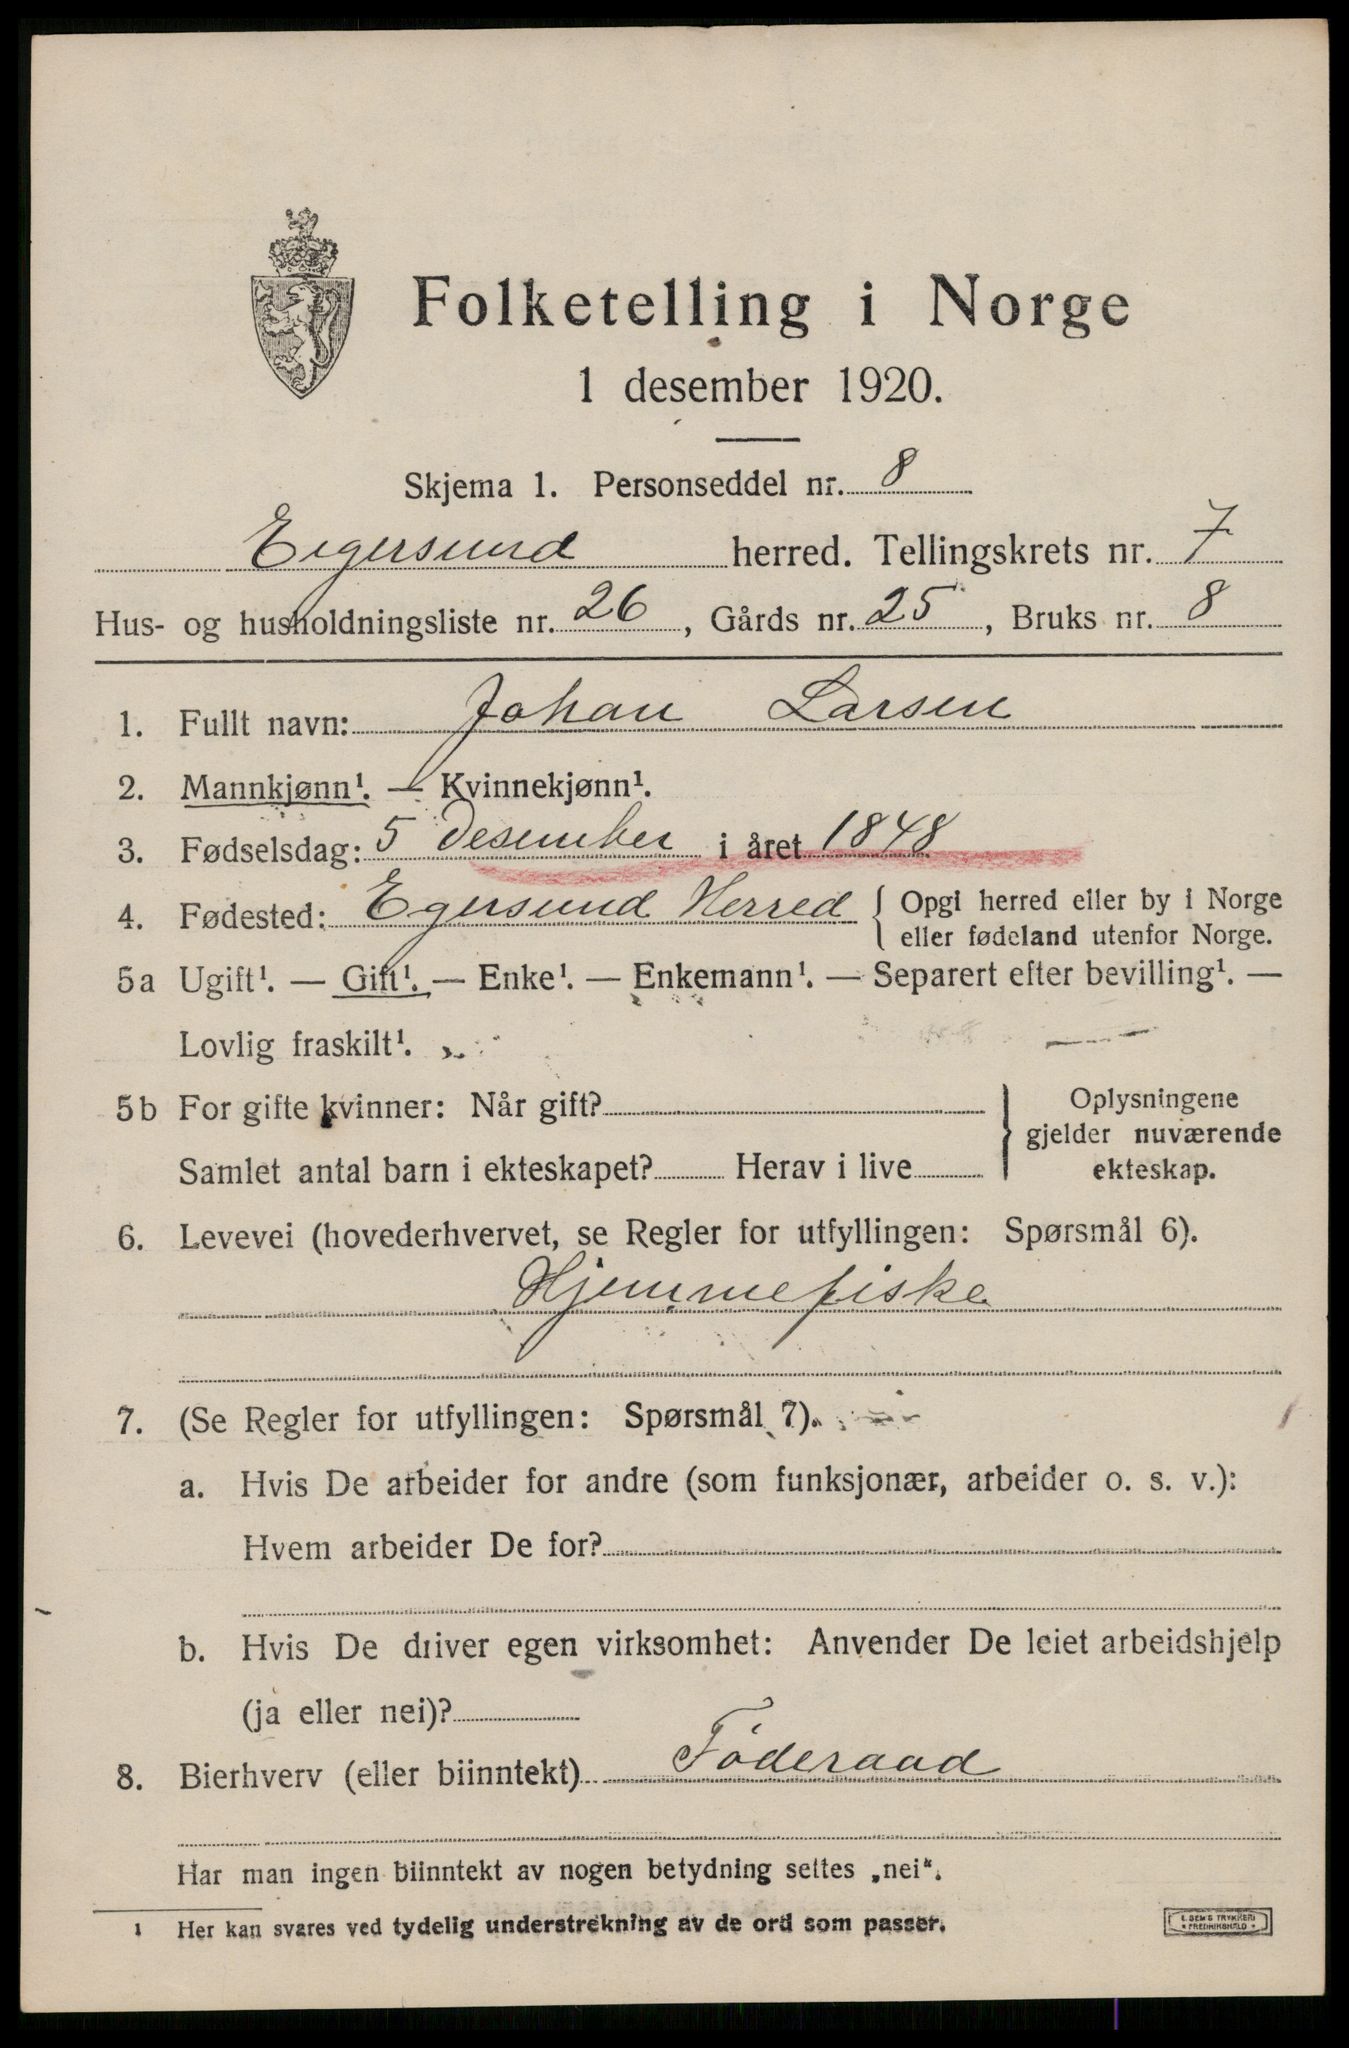 Folketelling i Norge
1 desember 1920.
Skjema 1. Personseddel nr. 8
Eigersund herred. Tellingskrets nr. 7
Hus- og husholdningsliste nr. 26, Gårds nr. 25, Bruks nr. 8
1. Fullt navn: Johan Larsen
2. Mannkjønn¹. — Kvinnekjønn¹.
3. Fødselsdag: 5 Desember i året 1848
4. Fødested: Egersund Herred { Opgi herred eller by i Norge
eller fødeland utenfor Norge.
5a Ugift¹. — Gift¹. — Enke¹. — Enkemann¹. — Separert efter bevilling¹. —
Lovlig fraskilt¹.
5b For gifte kvinner: Når gift?
Samlet antal barn i ekteskapet? Herav i live
} Oplysningene
gjelder nuværende
ekteskap.
6. Levevei (hovederhvervet, se Regler for utfyllingen: Spørsmål 6).
Hjemmefiske
7. (Se Regler for utfyllingen: Spørsmål 7).
a. Hvis De arbeider for andre (som funksjonær, arbeider o. s. v.):
Hvem arbeider De for?
b. Hvis De driver egen virksomhet: Anvender De leiet arbeidshjelp
(ja eller nei)?
8. Bierhverv (eller biinntekt) Föderaad
Har man ingen biinntekt av nogen betydning settes „nei“.
1 Her kan svares ved tydelig understrekning av de ord som passer.
E. SEM'S TRYKKERI
* FREDRIKSHALD *